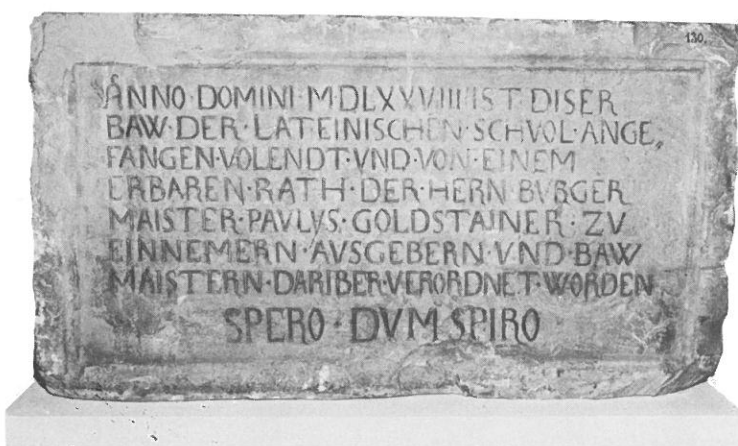 130.
ANNO·DOMINI·MDLXXVIIII·IST·DISER
BAW·DER·LATEINISCHEN·SCHVOL·ANGE,
FANGEN·VOLENDT·VND·VON·EINEM
ERBAREN·RATH·DER·HERN·BVRGER
MAISTER·PAVLVS·GOLDSTAINER·ZV
EINNEMERN·AVSGEBERN·VND·BAW
MAISTERN·DARIBER·VERORDNET·WORDEN
SPERO·DVM SPIRO